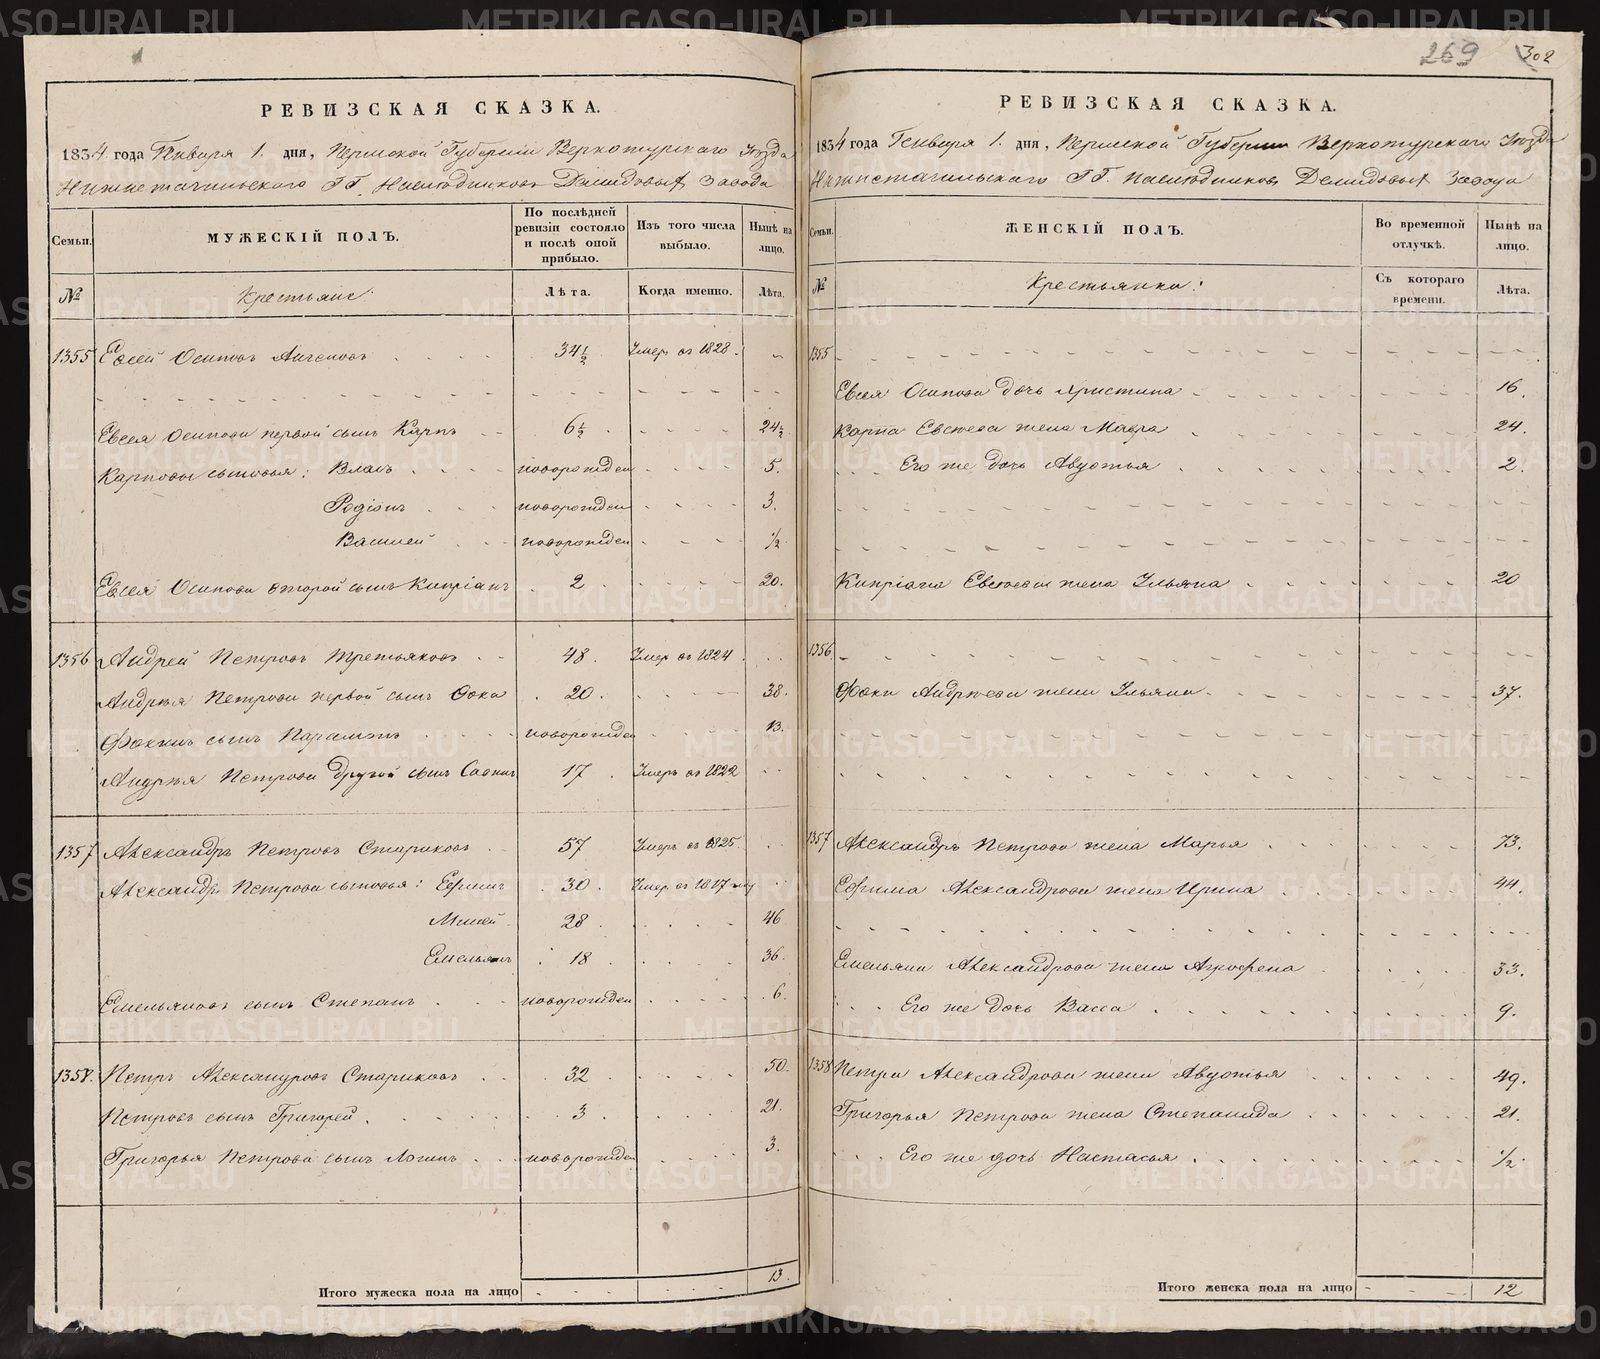 269 302
РЕВИЗСКАЯ СКАЗКА.
1834 года Генваря 1. дня, Пермской Губернии Верхотурского Уѣзда
Нижнетагильского ГГ. Наслѣдниковъ Демидовыхъ Завода
Семьи. МУЖЕСКІЙ ПОЛЪ. По послѣдней ревизіи состояло и послѣ оной прибыло. Изъ того числа выбыло. Нынѣ на лицо.
№ Крестьяне: Лѣта. Когда именно. Лѣта.
1355 Евсей Осиповъ 34½ Умеръ въ 1828.
Евсея Осипова первой сынъ Карпъ 6½ 24½
Карповы сыновья: Власъ новорожден 5.
Родіонъ новорожден 3.
Василей новорожден ½
Евсея Осипова второй сынъ Кипріанъ 2 20.
1356 Андрей Петровъ Третьяковъ 48. Умеръ въ 1824
Андрея Петрова первой сынъ Фока 20. 38.
Фокинъ сынъ Парамонъ новорожден 13.
Андрея Петрова другой сынъ Савинъ 17 Умеръ въ 1822
1357 Александръ Петровъ Стариковъ 57 Умеръ въ 1825
Александра Петрова сыновья: Ефимъ 30. Умеръ въ 1817
Миней 28 46
Емельянъ 18 36.
Емельяновъ сынъ Степанъ новорожден 6.
1358. Петръ Александровъ Стариковъ 32 50.
Петровъ сынъ Григорей 3 21.
Григорья Петрова сынъ Логинъ новорожден 3.
Итого мужеска пола на лицо 13.
РЕВИЗСКАЯ СКАЗКА.
1834 года Генваря 1. дня, Пермской Губернии Верхотурского Уѣзда
Нижнетагильского ГГ. Наслѣдниковъ Демидовыхъ Завода
Семьи. ЖЕНСКІЙ ПОЛЪ. Во временной отлучкѣ. Нынѣ на лицо.
№ Крестьянки: Съ котораго времени. Лѣта.
1355
Евсея Осипова дочь Христина 16.
Карпа Евсеева жена Мавра 24.
Его же дочь Авдотья 2.
Кипріана Евсеева жена Ульяна 20
1356
Фоки Андреева жена Ульяна 37.
1357 Александра Петрова жена Марья 73.
Ефима Александрова жена Ирина 44.
Емельяна Александрова жена Агрофена 33.
Его же дочь Васса 9.
1358 Петра Александрова жена Авдотья 49.
Григорья Петрова жена Степанида 21.
Его же дочь Настасья ½
Итого женска пола на лицо 12
METRIKI.GASO-URAL.RU